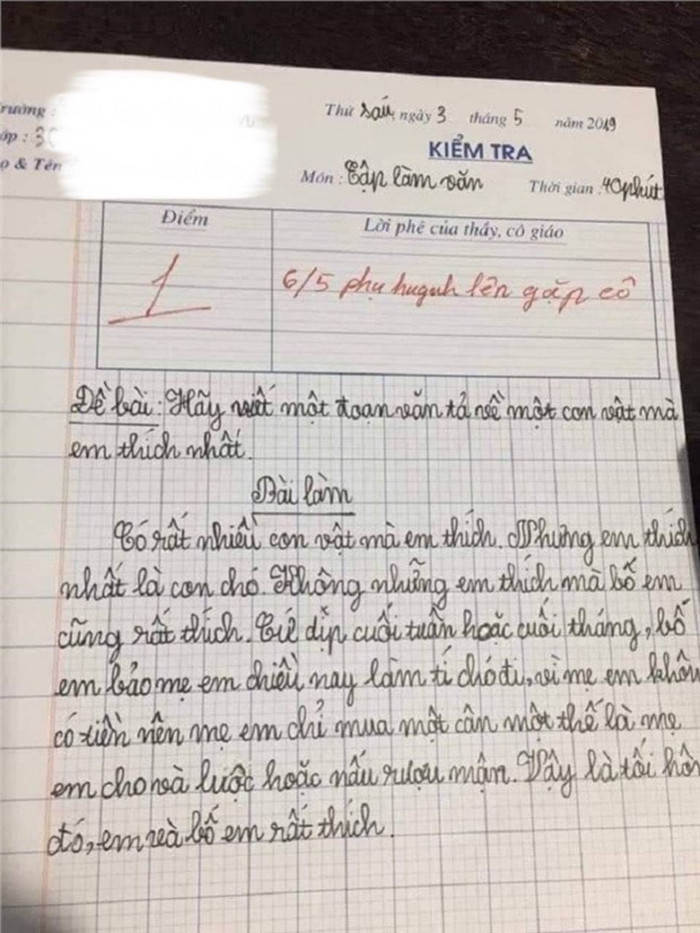 Trường :
Thứ sáu, ngày 3 tháng 5 năm 2019
Lớp : 3C
KIỂM TRA
Họ & Tên
Môn : Tập làm văn Thời gian : 40 phút
Điểm
Lời phê của thầy, cô giáo
1
6/5 phụ huynh lên gặp cô
Đề bài: Hãy viết một đoạn văn tả về một con vật mà
em thích nhất.
Bài làm
Có rất nhiều con vật mà em thích. Nhưng em thích
nhất là con chó. Không những em thích mà bố em
cũng rất thích. Cứ dịp cuối tuần hoặc cuối tháng, bố
em bảo mẹ em chiều nay làm tí chó đi, vì mẹ em không
có tiền nên mẹ em chỉ mua một cân một thế là mẹ
em cho và luộc hoặc nấu rượu mận. Vậy là tối hôm
đó, em và bố em rất thích.